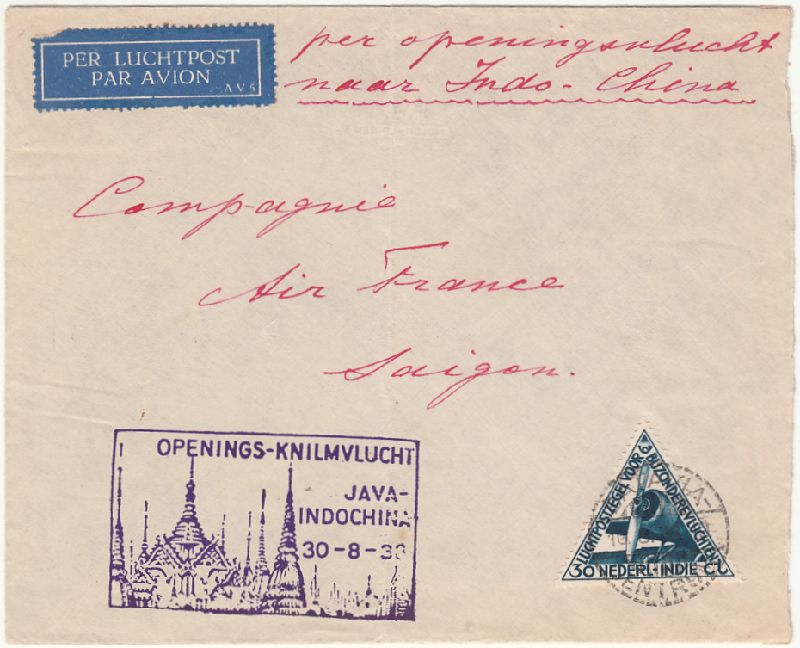 PER LUCHTPOST
PAR AVION
AVS
per openingsvlucht
naar Indo-China
Compagnie
Air France
Saigon.
OPENINGS-KNILMVLUCHT
JAVA-
INDOCHINA
30-8-38
LUCHTPOSTZEGEL VOOR BIJZONDERE VLUCHTEN
30 NEDERL-INDIE CT